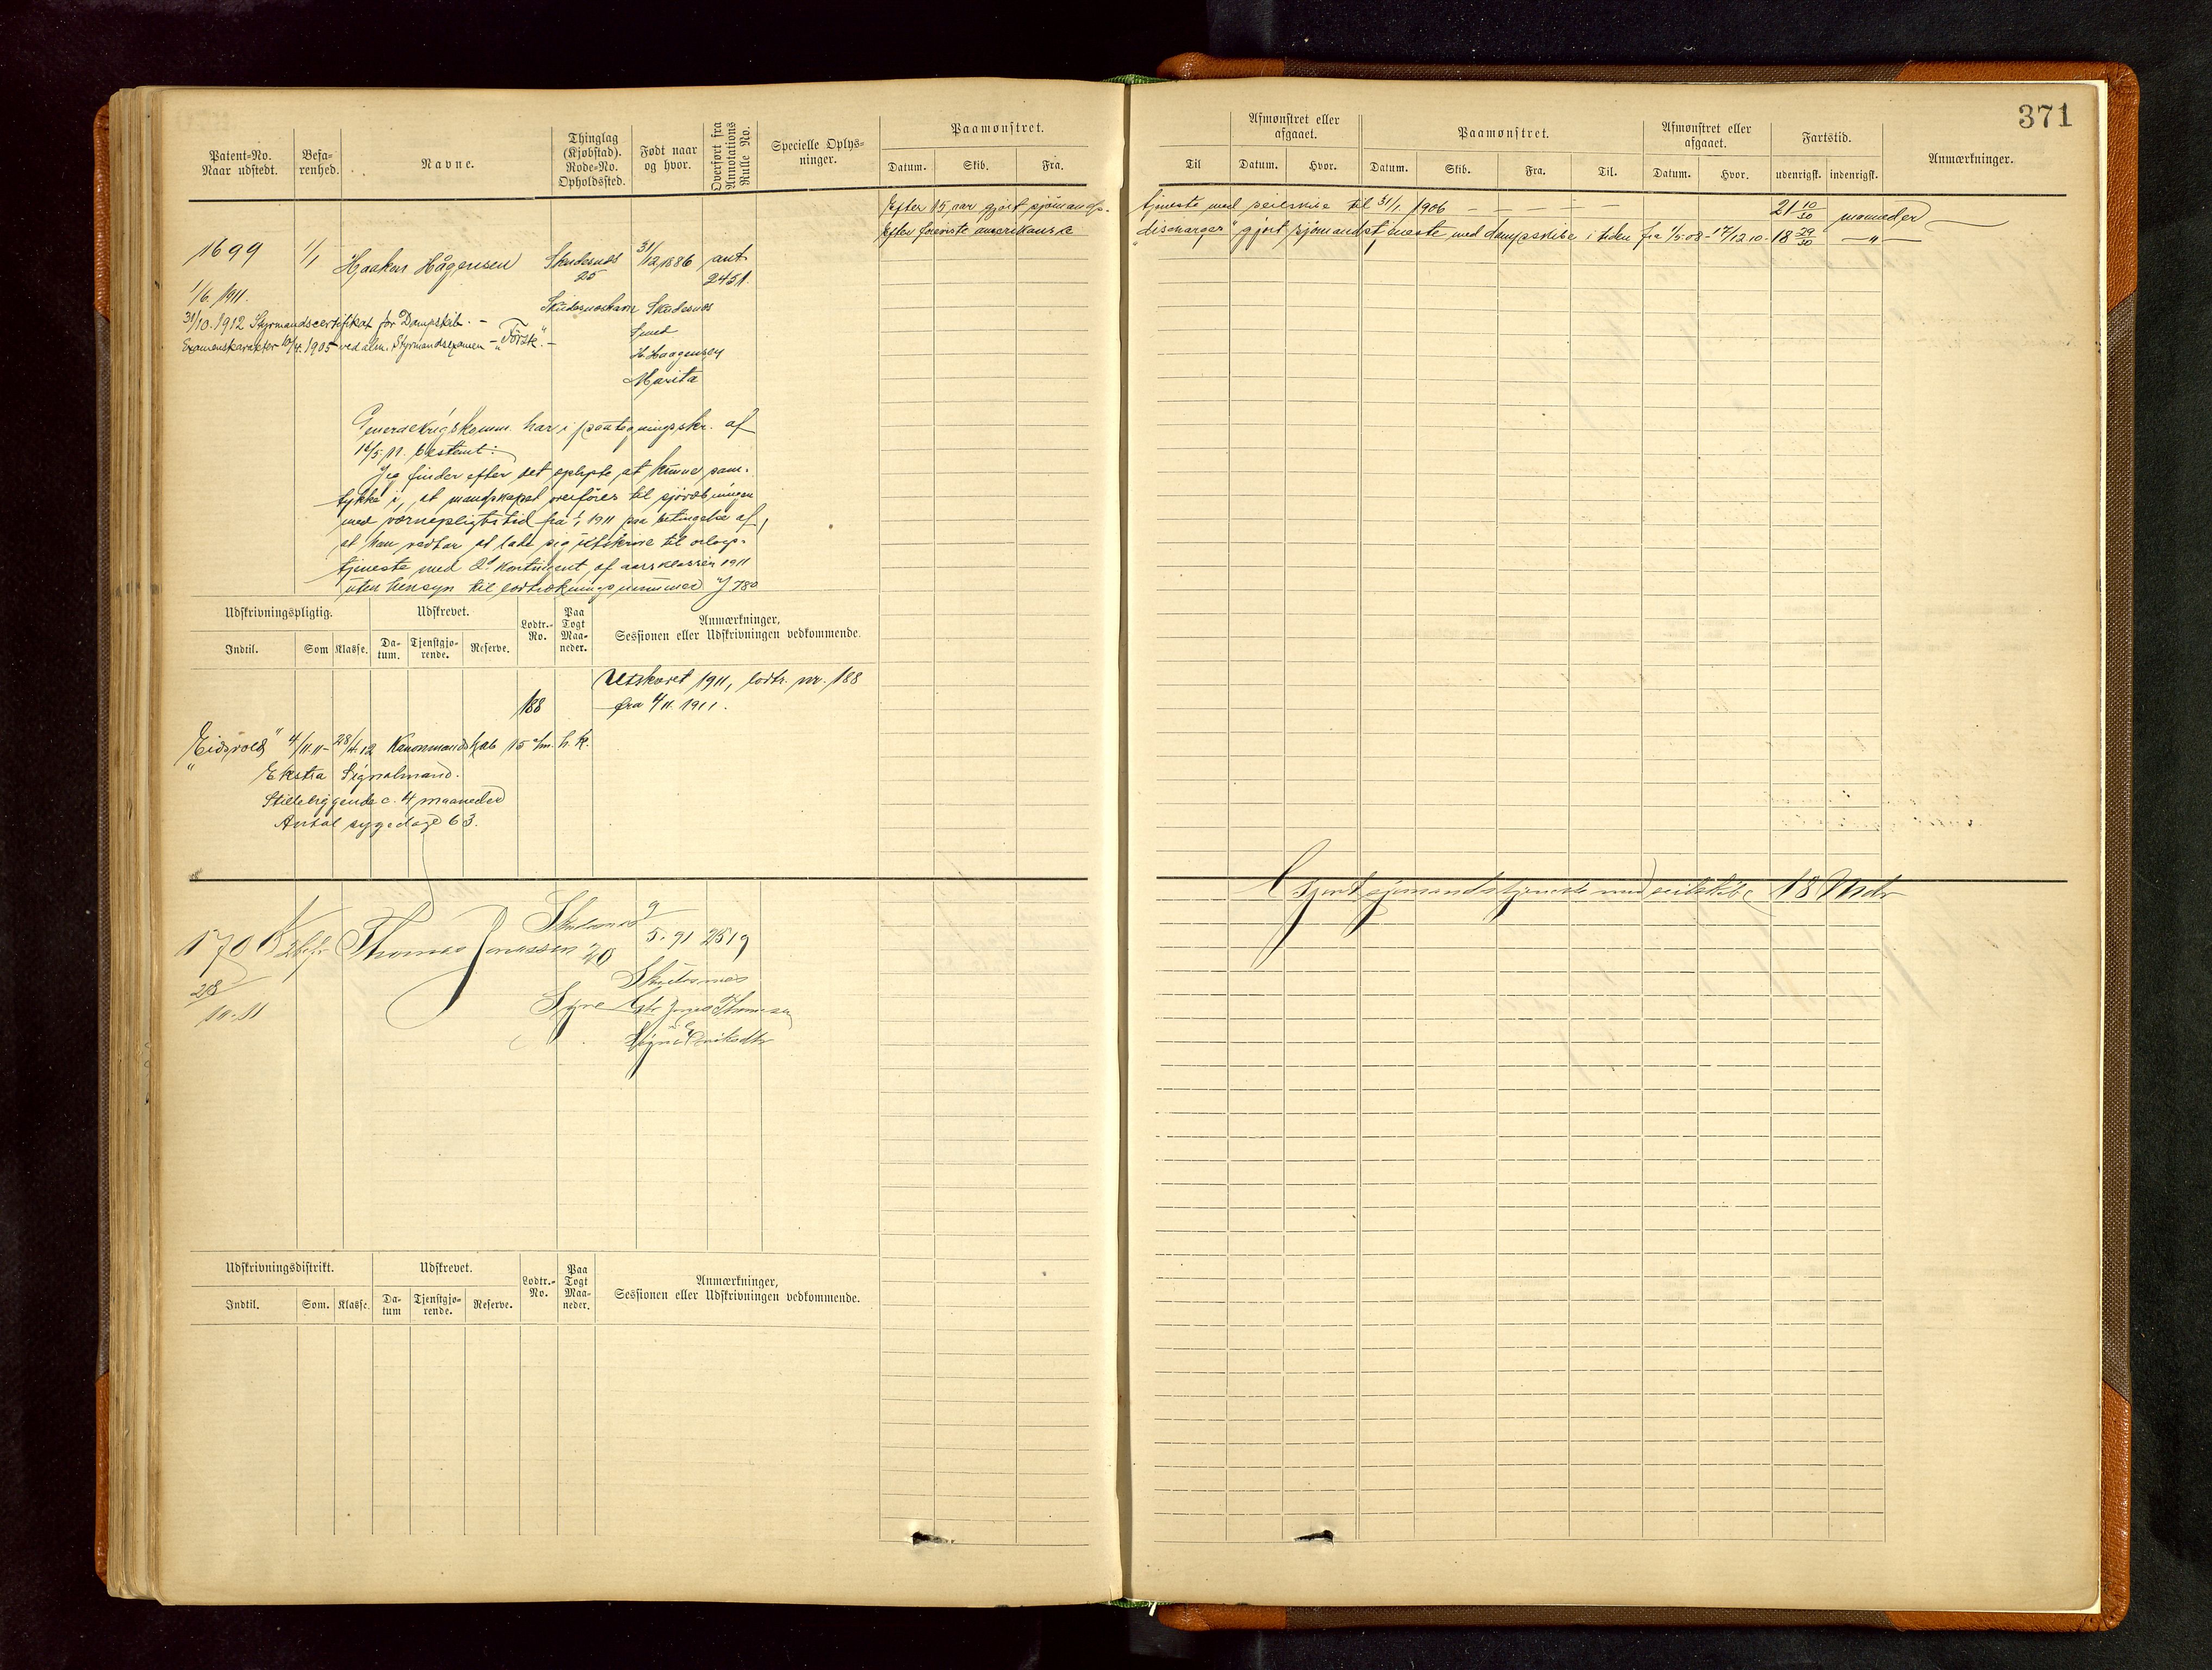 371
Patent-No. Naar udstedt.
Befarenhed.
Navne.
Thinglag (Kjøbstad). Rode-No. Opholdssted.
Født naar og hvor.
Overført fra Annotations Rulle No.
Specielle Oplysninger.
Paamønstret.
Datum. Skib. Fra.
Til
Afmønstret eller afgaaet.
Datum. Hvor.
Paamønstret.
Datum. Skib. Fra. Til.
Afmønstret eller afgaaet.
Datum. Hvor.
Fartstid.
udenrigsk. indenrigsk.
Anmærkninger.
Efter 15 aar gjort sjømands- tjeneste med seilskibe til 31/1 1906 – – – – – 21 10/30 maaneder
Efter foreviste amerikanske "discharger" gjort sjømandstjeneste med dampskibe i tiden fra 1/5 08 - 17/12 10 - 18 29/30 — " —
1699 1/1 Haaken Hågensen Skudesnes 31/12 1886 ant.
25 2451.
1/6. 1911. Skudesneshavn Skudesnes
31/10. 1912 Styrmandscertifikat for Dampskib. –
Smed
Examenskarakter 10/4. 1905 ved alm. Styrmandsexamen –
H. Haagensen
Marita
Generalkrigskomm. har i paategningsskr. af
16/5. 11. bestemt:
Jeg finder efter det oplyste at kunne sam-
tykke i, at mandskapet overføres til sjøvæbningen
med værnepligtstid fra 1/1 1911 paa betingelse af,
at han vedtar at lade sig utskrive til orlogs-
tjeneste med 2. kontingent af aarsklassen 1911
uten hensyn til lodtrækningsnummer J 780
Udskrivningspligtig.
Indtil. Som Klasse.
Udskrevet.
Datum. Tjenstgjørende. Reserve.
Lodtr.-No.
Paa Togt Maaneder.
Anmærkninger, Sessionen eller Udskrivningen vedkommende.
Utskrevet 1911, lodtr. nr. 188
188 fra 4/11. 1911.
"Eidsvold" 4/11. 11 – 28/4. 12 Kanonmandskab 15 c/m. h. k.
Ekstra Signalmand.
Stilleliggende c. 4 maaneder
Antal sygedage 63.
Gjort sjømandstjeneste med seilskibe 18 Mdr
Skudesnes 9
1700 Thomas Jonassen 20 5. 91 2519
28 Skudesnes
10. 11 Syre Jonas Thomsen
Udskrivningsdistrikt.
Indtil. Som. Klasse.
Udskrevet.
Datum Tjenstgjørende. Reserve.
Lodtr.-No.
Paa Togt Maaneder.
Anmærkninger, Sessionen eller Udskrivningen vedkommende.